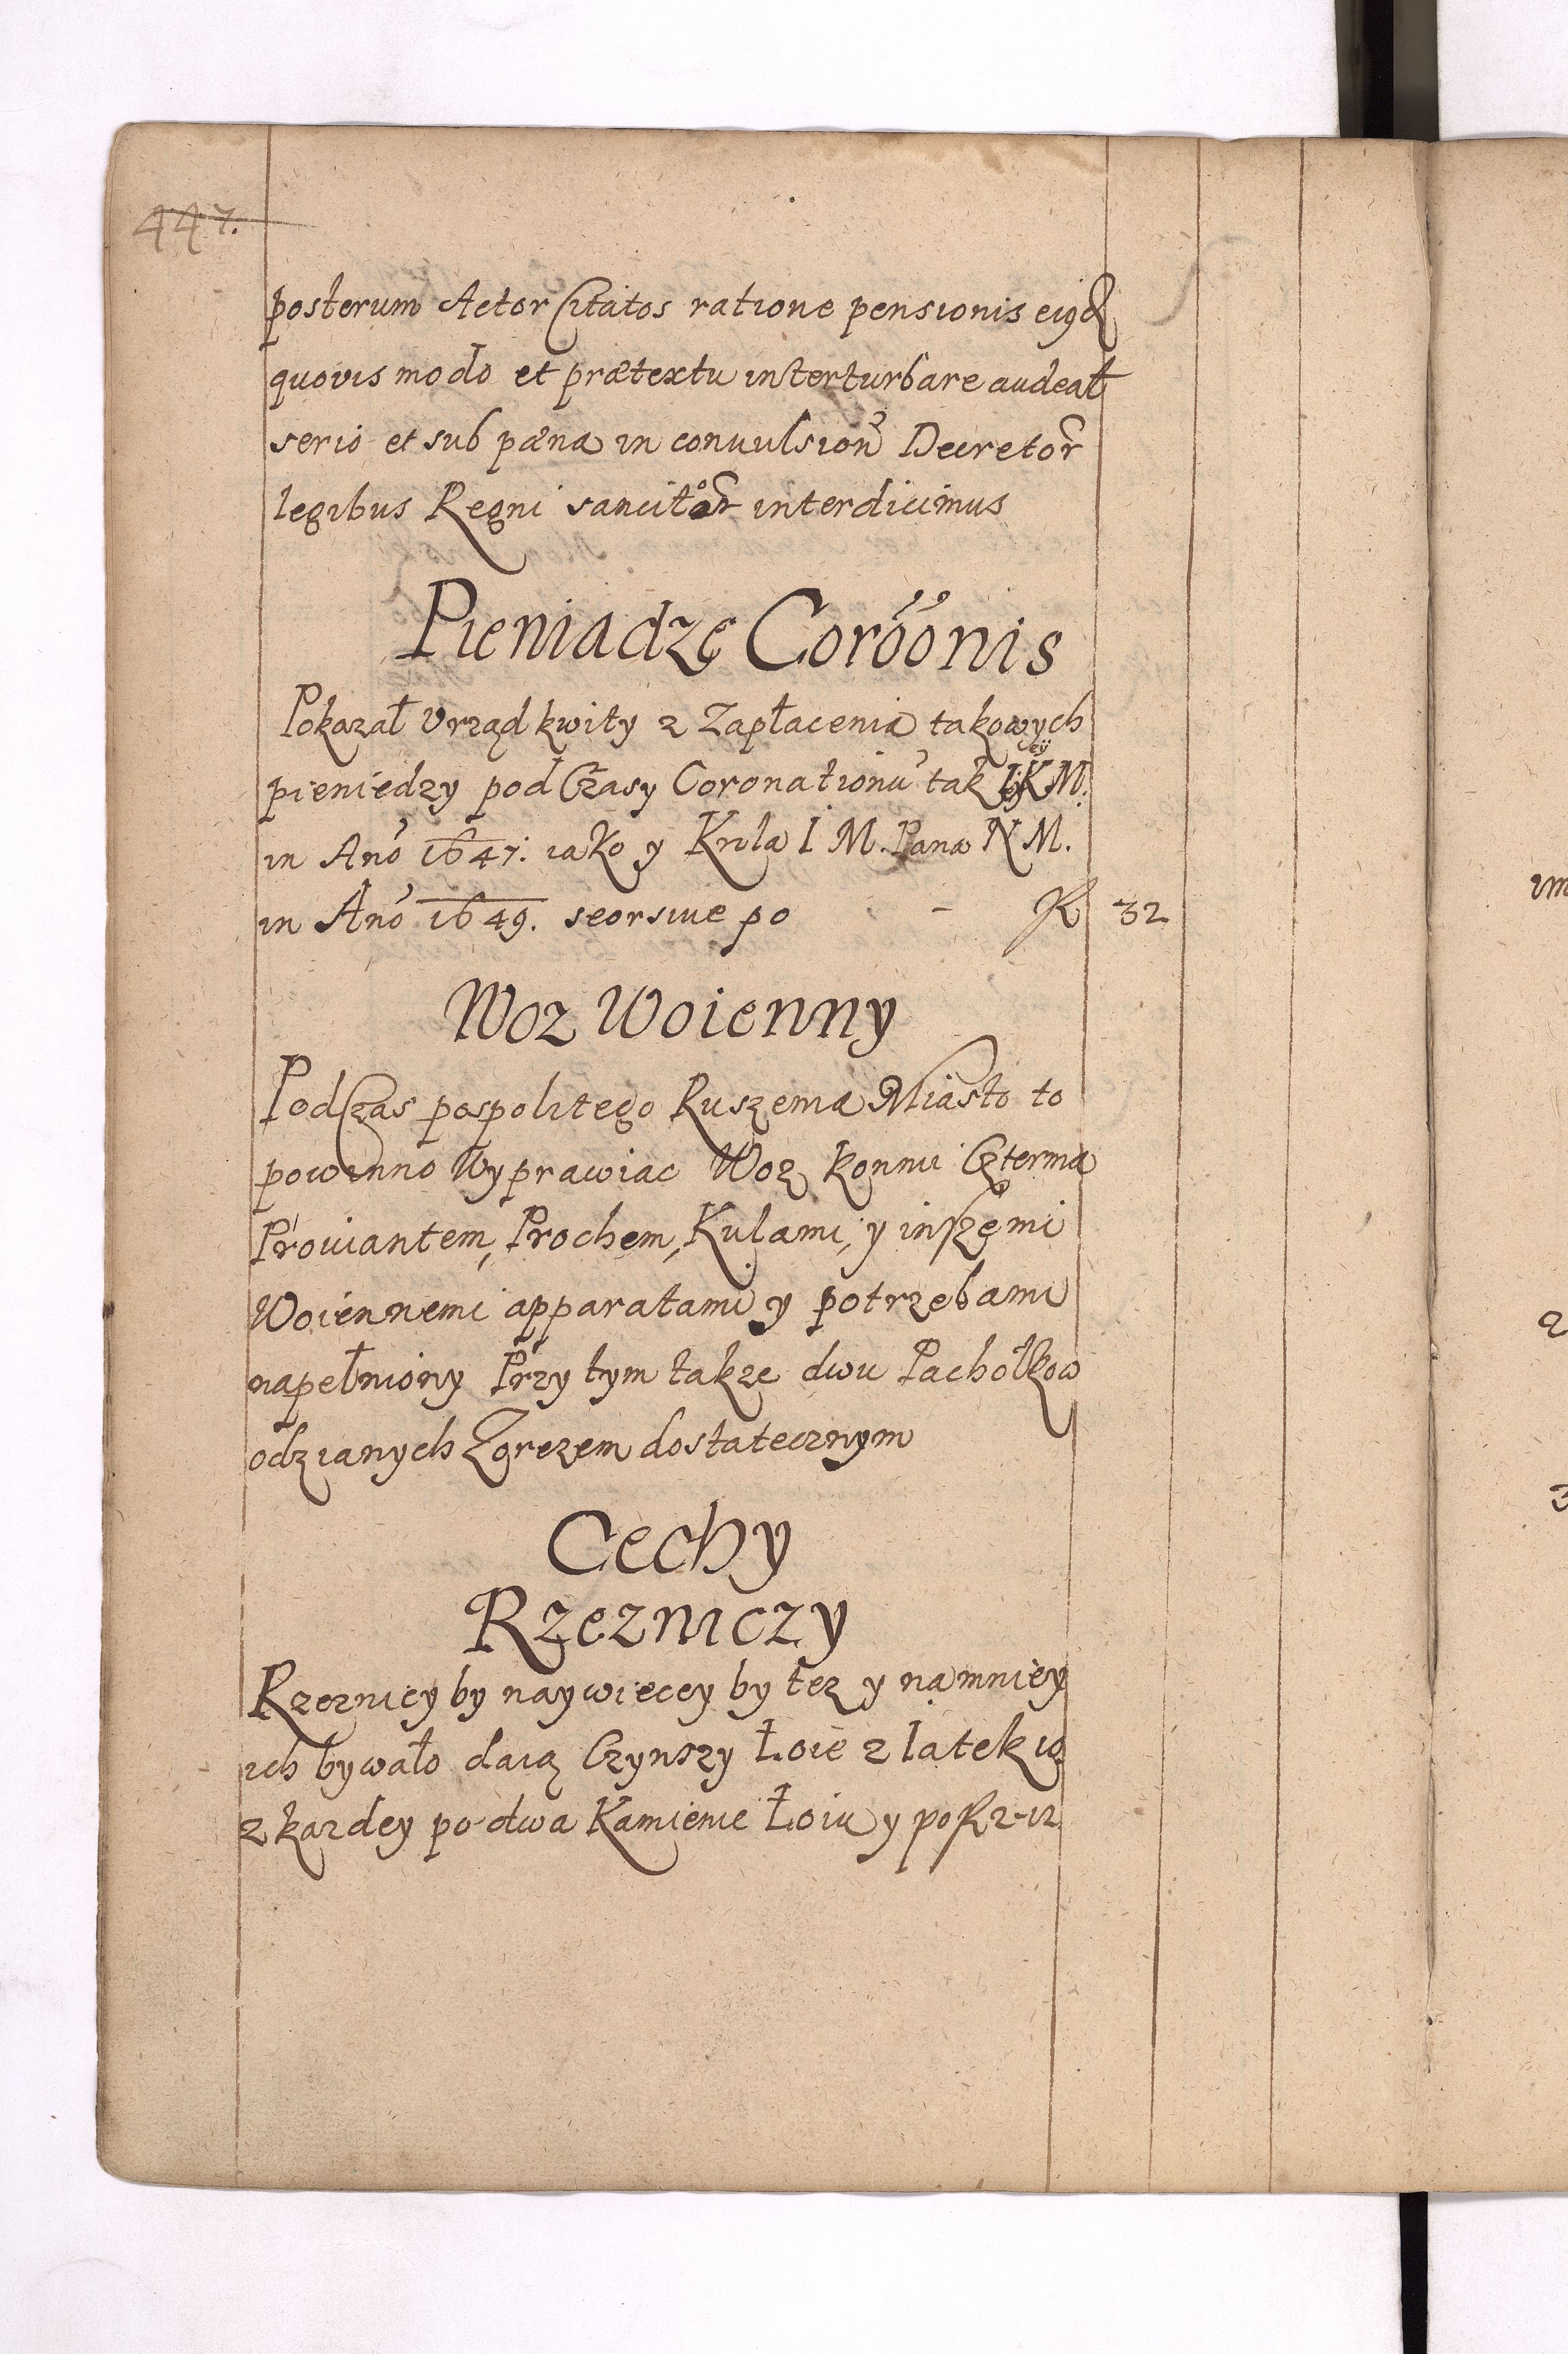 447.
posterum Actor Citatos ratione pensionis
quovis modo et prætextu interturbare audeat
serio et sub pæna in convulsion̄ Decretor
legibus Regni sancitor interdicimus
Pieniadze Coroonis
Pokazał Vrząd kwity z Zapłacenia takowych
pieniedzy pod Czasy Coronationū tak IKM.
in Ano 1647. iako y Krola I M. Pana N M.
in Ano 1649. seorsiue po - R 32
Woz Woienny
Pod Czas pospolitego Ruszenia Miasto to
powinno Wyprawiac Woz konmi Czterma
Prowiantem, Prochem, Kulami, y inszemi
Woiennemi apparatami y potrzebami
napełniony Przy tym takze dwu Pachołkow
odzianych Zorezem dostatecznym
Cechy
Rzezniczy
Rzeznicy by naywiecey by tez y namniey
ich bywało daią Czynszy Łoie z Iatek
z kazdey po dwa Kamienie Łoiu y po R 2-12